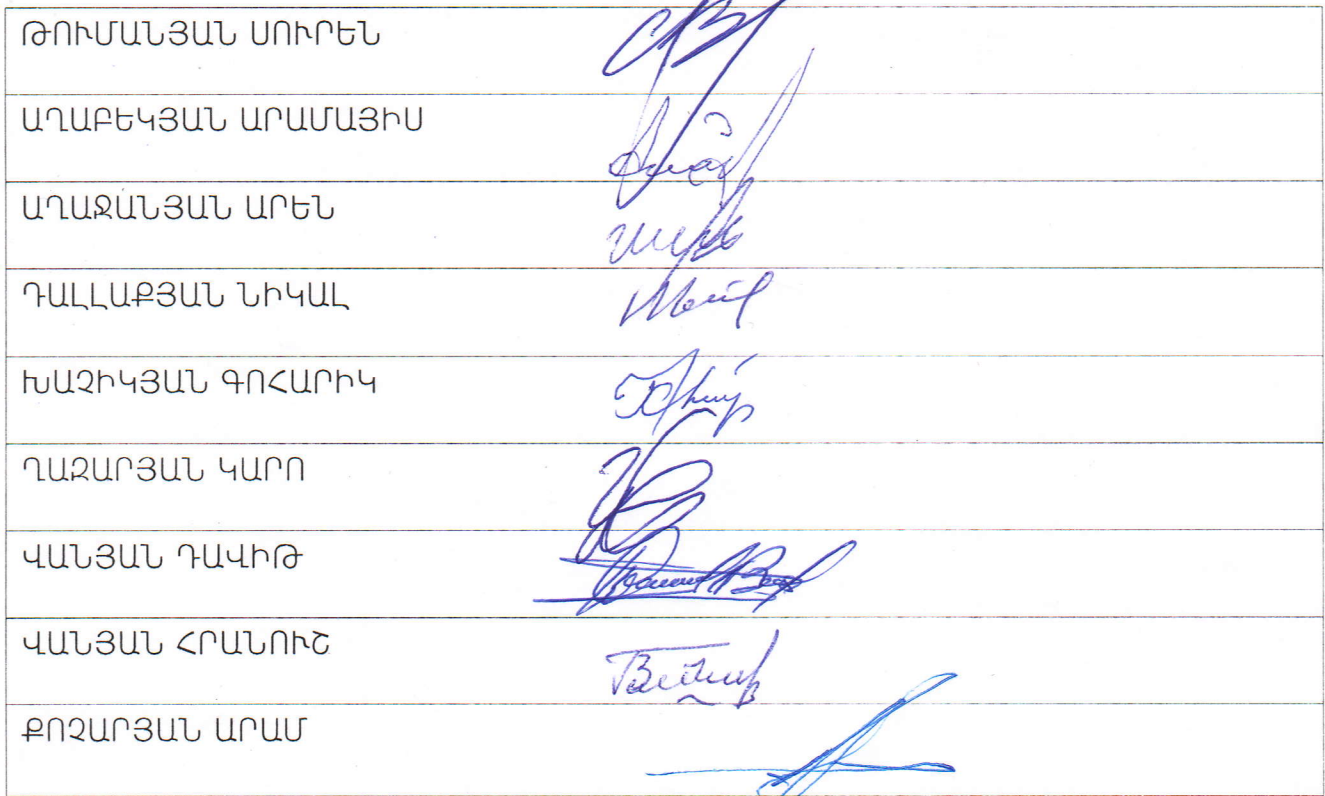 ԹՈՒՄԱՆՅԱՆ ՍՈՒՐԵՆ
ԱՂԱԲԵԿՅԱՆ ԱՐԱՄԱՅԻՍ
ԱՂԱՋԱՆՅԱՆ ԱՐԵՆ
ԴԱԼԼԱՔՅԱՆ ՆԻԿԱԼ
ԽԱՉԻԿՅԱՆ ԳՈՀԱՐԻԿ
ՂԱԶԱՐՅԱՆ ԿԱՐՈ
ՎԱՆՅԱՆ ԴԱՎԻԹ
ՎԱՆՅԱՆ ՀՐԱՆՈՒՇ
ՔՈՉԱՐՅԱՆ ԱՐԱՄ